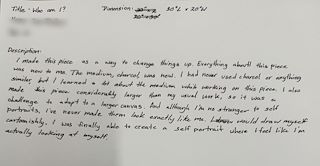 Title - Who am I? Dimension: 30"L x 20"W
Description:
I made this piece as a way to change things up. Everything about this piece
was new to me. The medium, charcol, was new. I had never used charcol or anything
similar, but I learned a lot about the medium while working on this piece. I also
made this piece considerably larger than my usual work, so it was a
challenge to adapt to a larger canvas. And although I'm no stranger to self
portraits, I've never made them look exactly like me. I would draw myself
cartoonishly. I was finally able to create a self portrait where I feel like I'm
actually looking at myself.